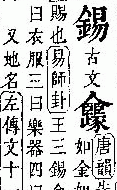 錫古文
唐韻
如金如
賜也易師卦王三錫
曰衣服三曰樂器四
又地名左傳文十